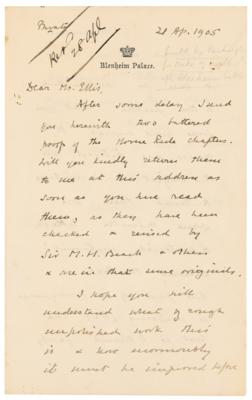 Private
Rec'd 28 Apl
21 Ap. 1905
Blenheim Palace.
Dear Mr. Ellis,
After some delay I send
you herewith two battered
proofs of the Home Rule chapters.
Will you kindly return them
to me at this address as
soon as you have read
them, as they have been
checked & revised by
Sir M. H. Beach & others
& are in that sense originals.
I hope you will
understand what of rough
unpolished work this
is & how enormously
it must be improved before